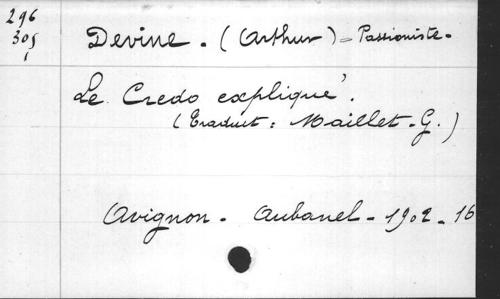 296
305
1
Devine. (Arthur) = Passioniste.
Le Credo expliqué.
(Traduit: Maillet. G.)
Avignon. Aubanel. 1902. 16